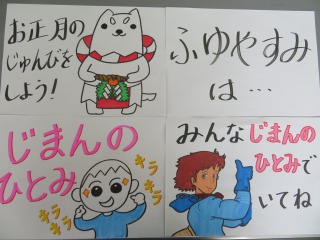 お正月の
じゅんびを
しよう!
ふゆやすみ
は…
じまんの
ひとみ
キラ
キラ
キラ
キラ
みんなじまんの
ひとみで
いてね